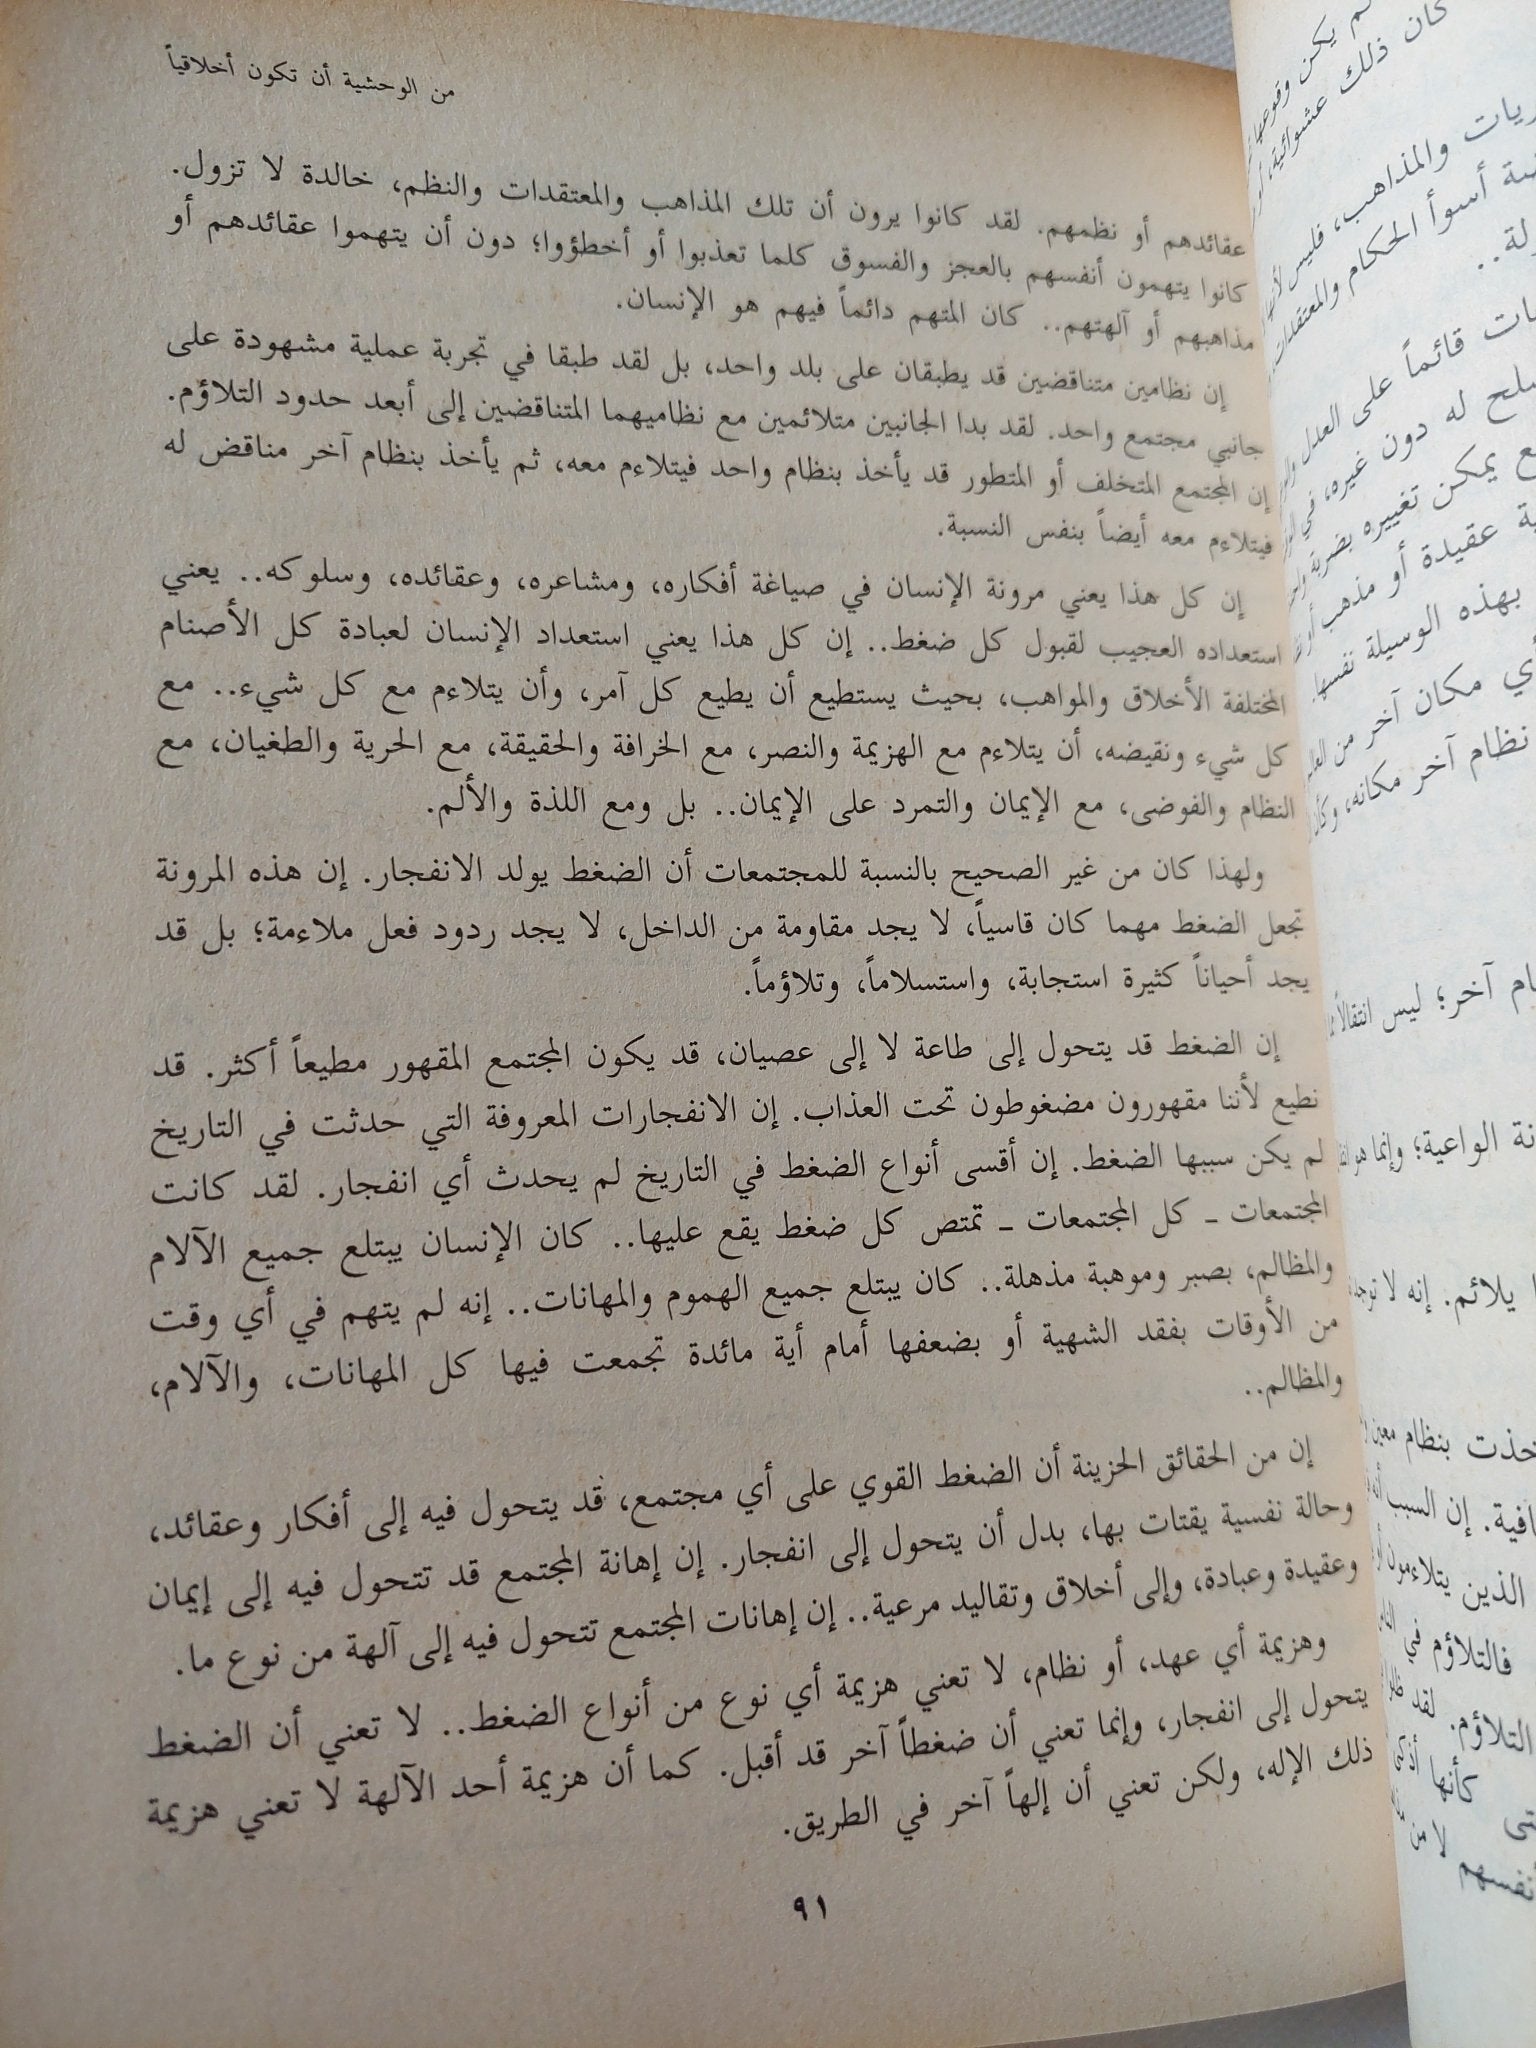 من الوحشية أن تكون أخلاقياً
عقائدهم أو نظمهم. لقد كانوا يرون أن تلك المذاهب والمعتقدات والنظم، خالدة لا تزول.
كانوا يتهمون أنفسهم بالعجز والفسوق كلما تعذبوا أو أخطؤوا؛ دون أن يتهموا عقائدهم أو
مذاهبهم أو آلهتهم.. كان المتهم دائماً فيهم هو الإنسان.
إن نظامين متناقضين قد يطبقان على بلد واحد، بل لقد طبقا في تجربة عملية مشهودة على
جانبي مجتمع واحد. لقد بدا الجانبين متلائمين مع نظاميهما المتناقضين إلى أبعد حدود التلاؤم.
إن المجتمع المتخلف أو المتطور قد يأخذ بنظام واحد فيتلاءم معه، ثم يأخذ بنظام آخر مناقض له
فيتلاءم معه أيضاً بنفس النسبة.
إن كل هذا يعني مرونة الإنسان في صياغة أفكاره، ومشاعره، وعقائده، وسلوكه.. يعني
استعداده العجيب لقبول كل ضغط.. إن كل هذا يعني استعداد الإنسان لعبادة كل الأصنام
المختلفة الأخلاق والمواهب، بحيث يستطيع أن يطيع كل آمر، وأن يتلاءم مع كل شيء.. مع
كل شيء ونقيضه، أن يتلاءم مع الهزيمة والنصر، مع الخرافة والحقيقة، مع الحرية والطغيان، مع
النظام والفوضى، مع الإيمان والتمرد على الإيمان.. بل ومع اللذة والألم.
ولهذا كان من غير الصحيح بالنسبة للمجتمعات أن الضغط يولد الانفجار. إن هذه المرونة
تجعل الضغط مهما كان قاسياً، لا يجد مقاومة من الداخل، لا يجد ردود فعل ملاءمة؛ بل قد
يجد أحياناً كثيرة استجابة، واستسلاماً، وتلاؤماً.
إن الضغط قد يتحول إلى طاعة لا إلى عصيان، قد يكون المجتمع المقهور مطيعاً أكثر. قد
نطيع لأننا مقهورون مضغوطون تحت العذاب. إن الانفجارات المعروفة التي حدثت في التاريخ
لم يكن سببها الضغط. إن أقسى أنواع الضغط في التاريخ لم يحدث أي انفجار. لقد كانت
المجتمعات ـ كل المجتمعات ـ تمتص كل ضغط يقع عليها.. كان الإنسان يبتلع جميع الآلام
والمظالم، بصبر وموهبة مذهلة.. كان يبتلع جميع الهموم والمهانات.. إنه لم يتهم في أي وقت
من الأوقات بفقد الشهية أو بضعفها أمام أية مائدة تجمعت فيها كل المهانات، والآلام،
والمظالم..
إن من الحقائق الحزينة أن الضغط القوي على أي مجتمع، قد يتحول فيه إلى أفكار وعقائد،
وحالة نفسية يقتات بها، بدل أن يتحول إلى انفجار. إن إهانة المجتمع قد تتحول فيه إلى إيمان
وعقيدة وعبادة، وإلى أخلاق وتقاليد مرعية.. إن إهانات المجتمع تتحول فيه إلى آلهة من نوع ما.
وهزيمة أي عهد، أو نظام، لا تعني هزيمة أي نوع من أنواع الضغط.. لا تعني أن الضغط
يتحول إلى انفجار، وإنما تعني أن ضغطاً آخر قد أقبل. كما أن هزيمة أحد الآلهة لا تعني هزيمة
ذلك الإله، ولكن تعني أن إلهاً آخر في الطريق.
٩١
لم يكن وقوعها
كان ذلك عشوائية، أو
ريات والمذاهب، فليس
أسوأ الحكام والمعتقدات
قائماً على العدل
له دون غيره، في
يمكن تغييره بضربة
عقيدة أو مذهب أو
بهذه الوسيلة نفسها.
أي مكان آخر من
نظام آخر مكانه، وكأن
آخر؛ ليس انتقالاً
الواعية؛ وإنما هو
يلائم. إنه لا توجد
بنظام معين
إن السبب أنه
الذين يتلاءمون أو
فالتلاؤم في
التلاؤم. لقد
كأنها أذكى
لا من
أنفسهم